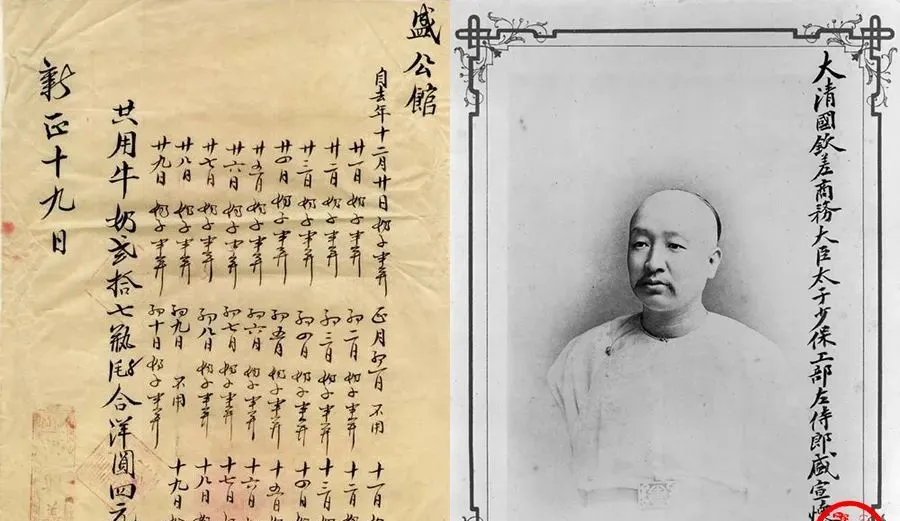 盛公館
自去年十二月廿日奶子半
廿一日奶子半
廿二日奶子半
廿三日奶子半
廿四日奶子半
廿五日奶子半
廿六日奶子半
廿七日奶子半
廿八日奶子半
廿九日奶子半
正月初一日不用
初二日奶子半
初三日奶子半
初四日奶子半
初五日奶子半
初六日奶子半
初七日奶子半
初八日奶子半
初九日不用
初十日奶子半
十一日
十二日
十三日
十四日
十五日
十六日
十七日
十八日
十九日
共用牛奶弍拾七瓶合洋圓四元
新正十九日
大清國欽差商務大臣太子少保工部左侍郎盛宣懷